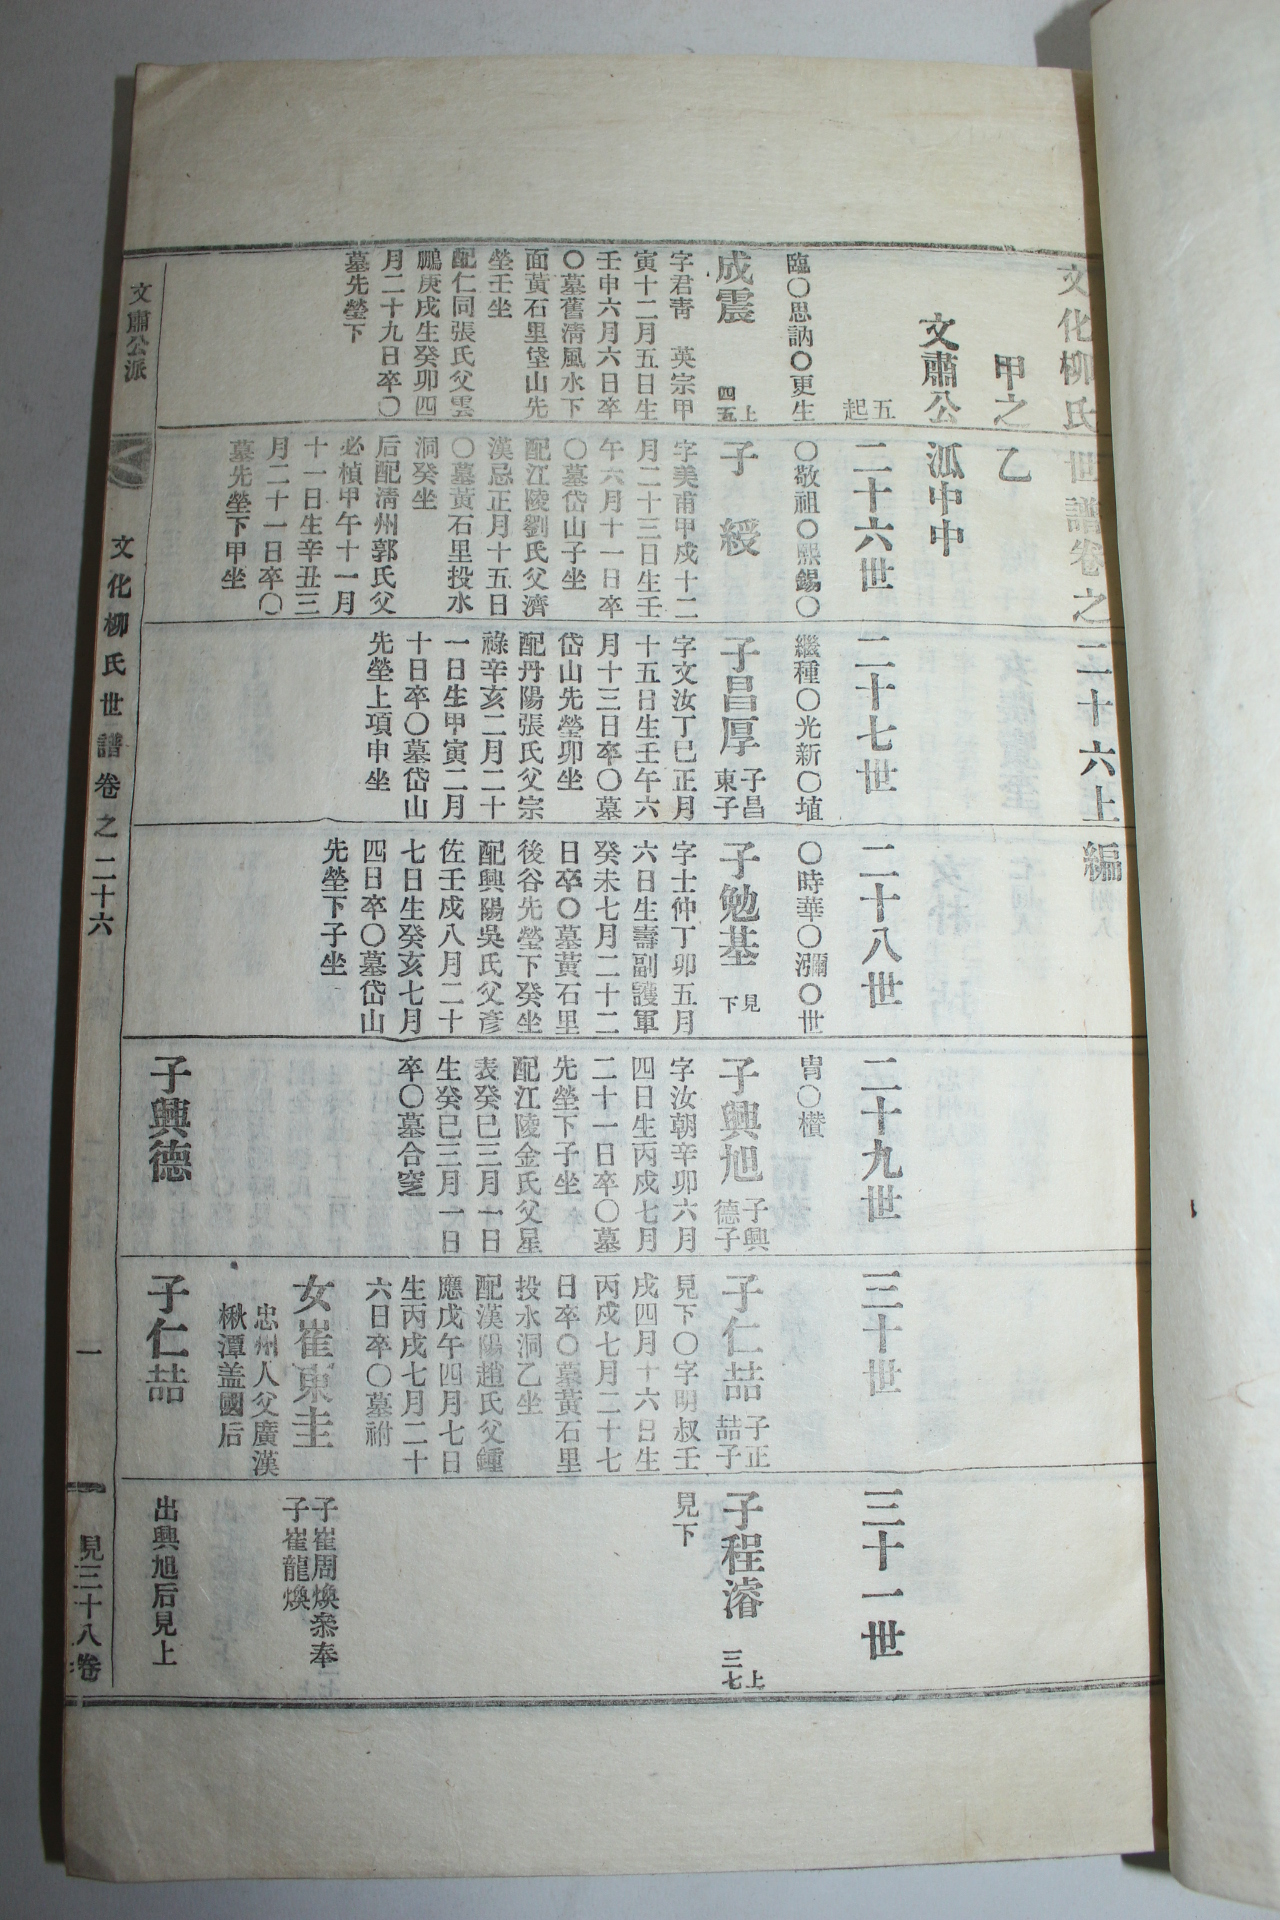 文化柳氏世譜卷之二十六上編
甲之乙
文肅公派中中
五
起
二十六世
二十七世
二十八世
二十九世
三十世
三十一世
臨〇思訥〇更生
〇敬祖〇熙錫〇
繼種〇光新〇埴
〇時華〇瀰〇世
冑〇櫕
成震
上
四五
字君靑 英宗甲
寅十二月五日生
壬申六月六日卒
〇墓舊淸風水下
面黃石里垈山先
塋壬坐
配仁同張氏父雲
鵬庚戌生癸卯四
月二十九日卒〇
墓先塋下
子綬
字美甫甲戌十二
月二十三日生壬
午六月十一日卒
〇墓岱山子坐
配江陵劉氏父濟
漢忌正月十五日
〇墓黃石里投水
洞癸坐
后配淸州郭氏父
必楨甲午十一月
十一日生辛丑三
月二十一日卒〇
墓先塋下甲坐
子昌厚
子昌
東子
字文汝丁巳正月
十五日生壬午六
月十三日卒〇墓
岱山先塋卯坐
配丹陽張氏父宗
祿辛亥二月二十
一日生甲寅二月
十日卒〇墓岱山
先塋上項申坐
子勉基
見
下
字士仲丁卯五月
六日生壽副護軍
癸未七月二十二
日卒〇墓黃石里
後谷先塋下癸坐
配興陽吳氏父彥
佐壬戌八月二十
七日生癸亥七月
四日卒〇墓岱山
先塋下子坐
子興旭
子興
德子
字汝朝辛卯六月
四日生丙戌七月
二十一日卒〇墓
先塋下子坐
配江陵金氏父星
表癸巳三月一日
生癸巳三月一日
卒〇墓合窆
子興德
子仁喆
子正
喆子
見下〇字明叔壬
戌四月十六日生
丙戌七月二十七
日卒〇墓黃石里
投水洞乙坐
配漢陽趙氏父鍾
應戊午四月七日
生丙戌七月二十
六日卒〇墓祔
女崔東圭
忠州人父廣漢
楸潭盖國后
子仁喆
子程濬
上
三七
見下
子崔周煥叅奉
子崔龍煥
出興旭后見上
文肅公派
文化柳氏世譜卷之二十六
一
見三十八卷